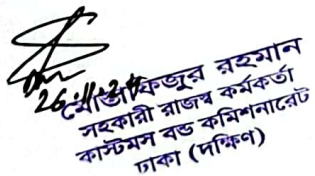 26.11.24
মোস্তাফিজুর রহমান
সহকারী রাজস্ব কর্মকর্তা
কাস্টমস বন্ড কমিশনারেট
ঢাকা (দক্ষিণ)